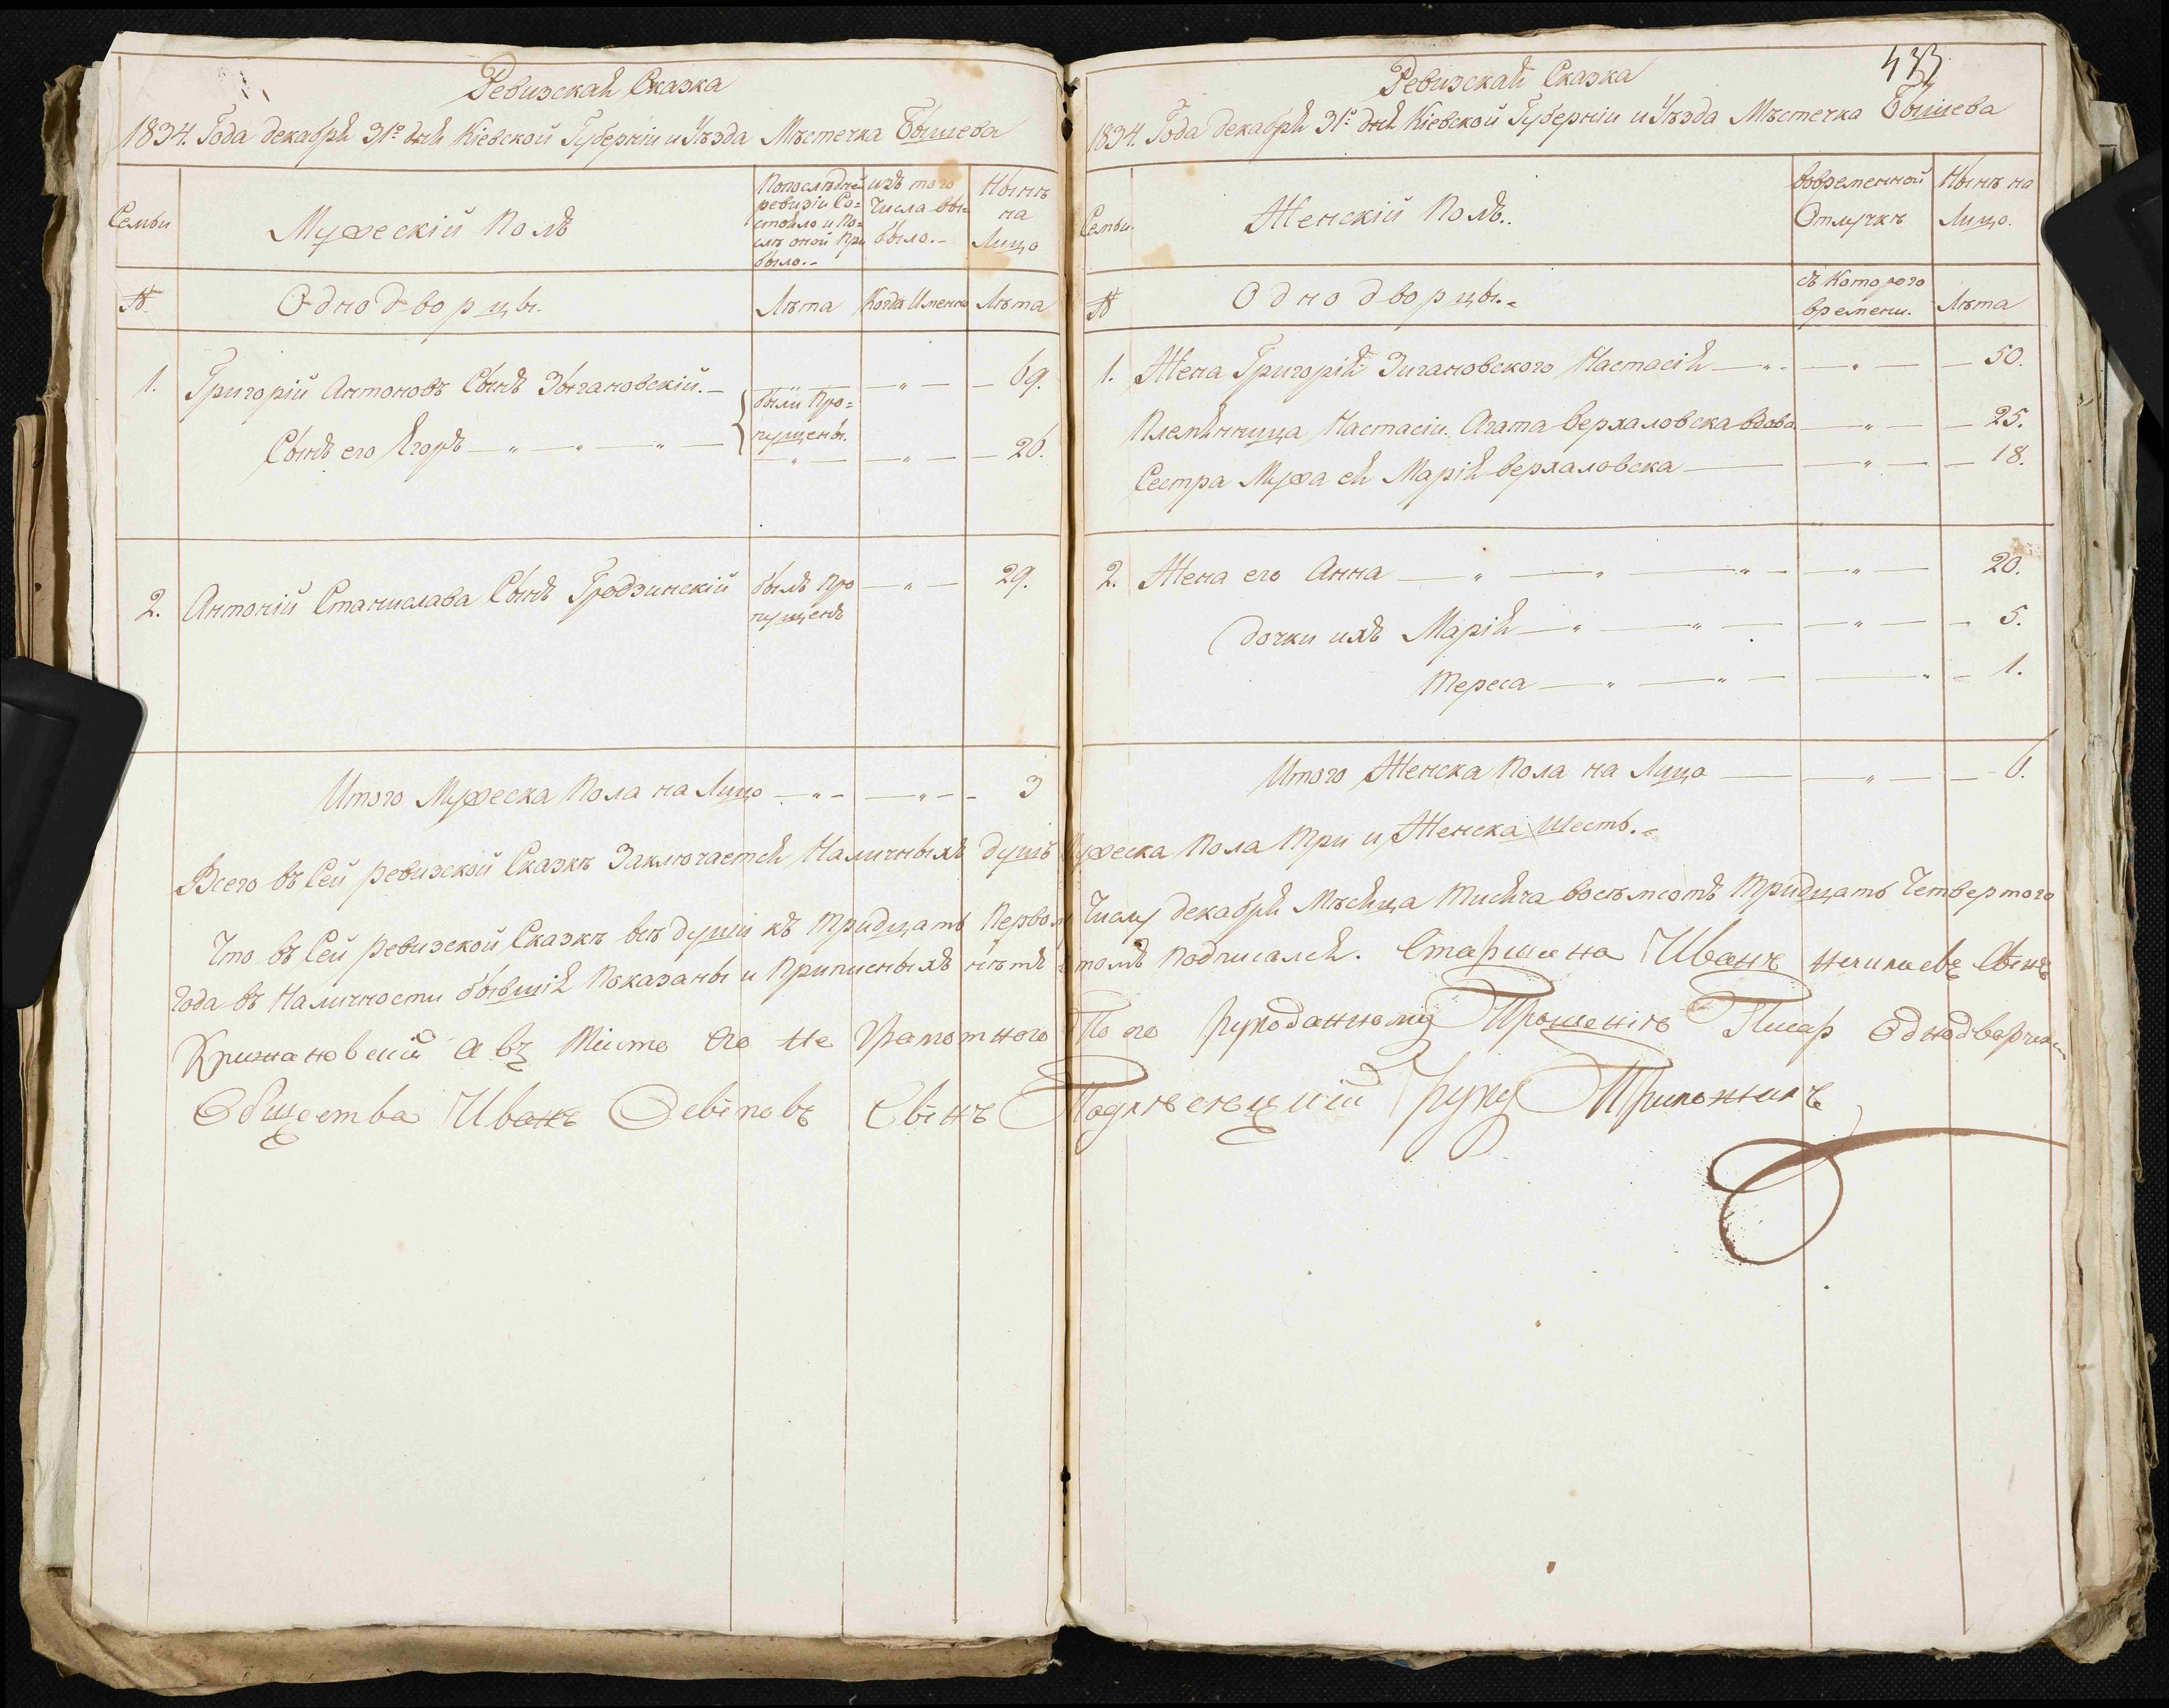 Ревизская Сказка
1834. Года декабря 31го дня Кіевской Губерніи и Уѣзда Мѣстечка Бышева
Семьи
Мужескій Полъ
Попослѣдней
ревизіи Со=
стояло и По=
слѣ оной При
было.-
изъ того
Числа Вы=
было.-
Нынѣ
на
Лицо
№.
Однодворцы.
Лѣта
Когда Именно
Лѣта
1. Григорій Антоновъ Сынъ Зыгановскій. — были Про= — 69.
Сынъ его Ягоръ — пущены. — 26.
2. Антоній Станислава Сынъ Гродзинскій былъ Про — 29.
пущенъ
Итого Мужеска Пола на Лицо — 3
433
Ревизская Сказка
1834. Года декабря 31го дня Кіевской Губерніи и Уѣзда Мѣстечка Бышева
Семьи.
Женскій Полъ..
Вовременной
Отлучкѣ
Нынѣ на
Лицо.
№
Однодворцы.=
съ Которого
времени.
Лѣта
1. Жена Григорія Зигановского Настасія — 50.
Племянница Настасіи Агата Верхаловска вдова — 25.
Сестра Мужа ея Марія Верхаловска — 18.
2. Жена его Анна — 20.
дочки ихъ Марія — 5.
Тереса — 1.
Итого Женска Пола на Лицо — 6.
Всего въ Сей ревизской Сказкѣ Заключается Наличныхъ душъ Мужеска Пола Три и Женска Шесть.=
Что въ Сей Ревизской Сказкѣ всѣ души къ Тридцать Первому Числу декабря Мѣсяца Тисяча восѣмсотъ Тридцать Четвертого
Года въ Наличности бывшія Показаны и Приписныхъ нѣтъ втомъ Подписался. Старшена Иванъ Сынъ
Крижановский а въ Мисто его не Грамотного По его рукоданному Прошенію Писар Однодворчиск
Общества Иванъ Сынъ руку Приложилъ